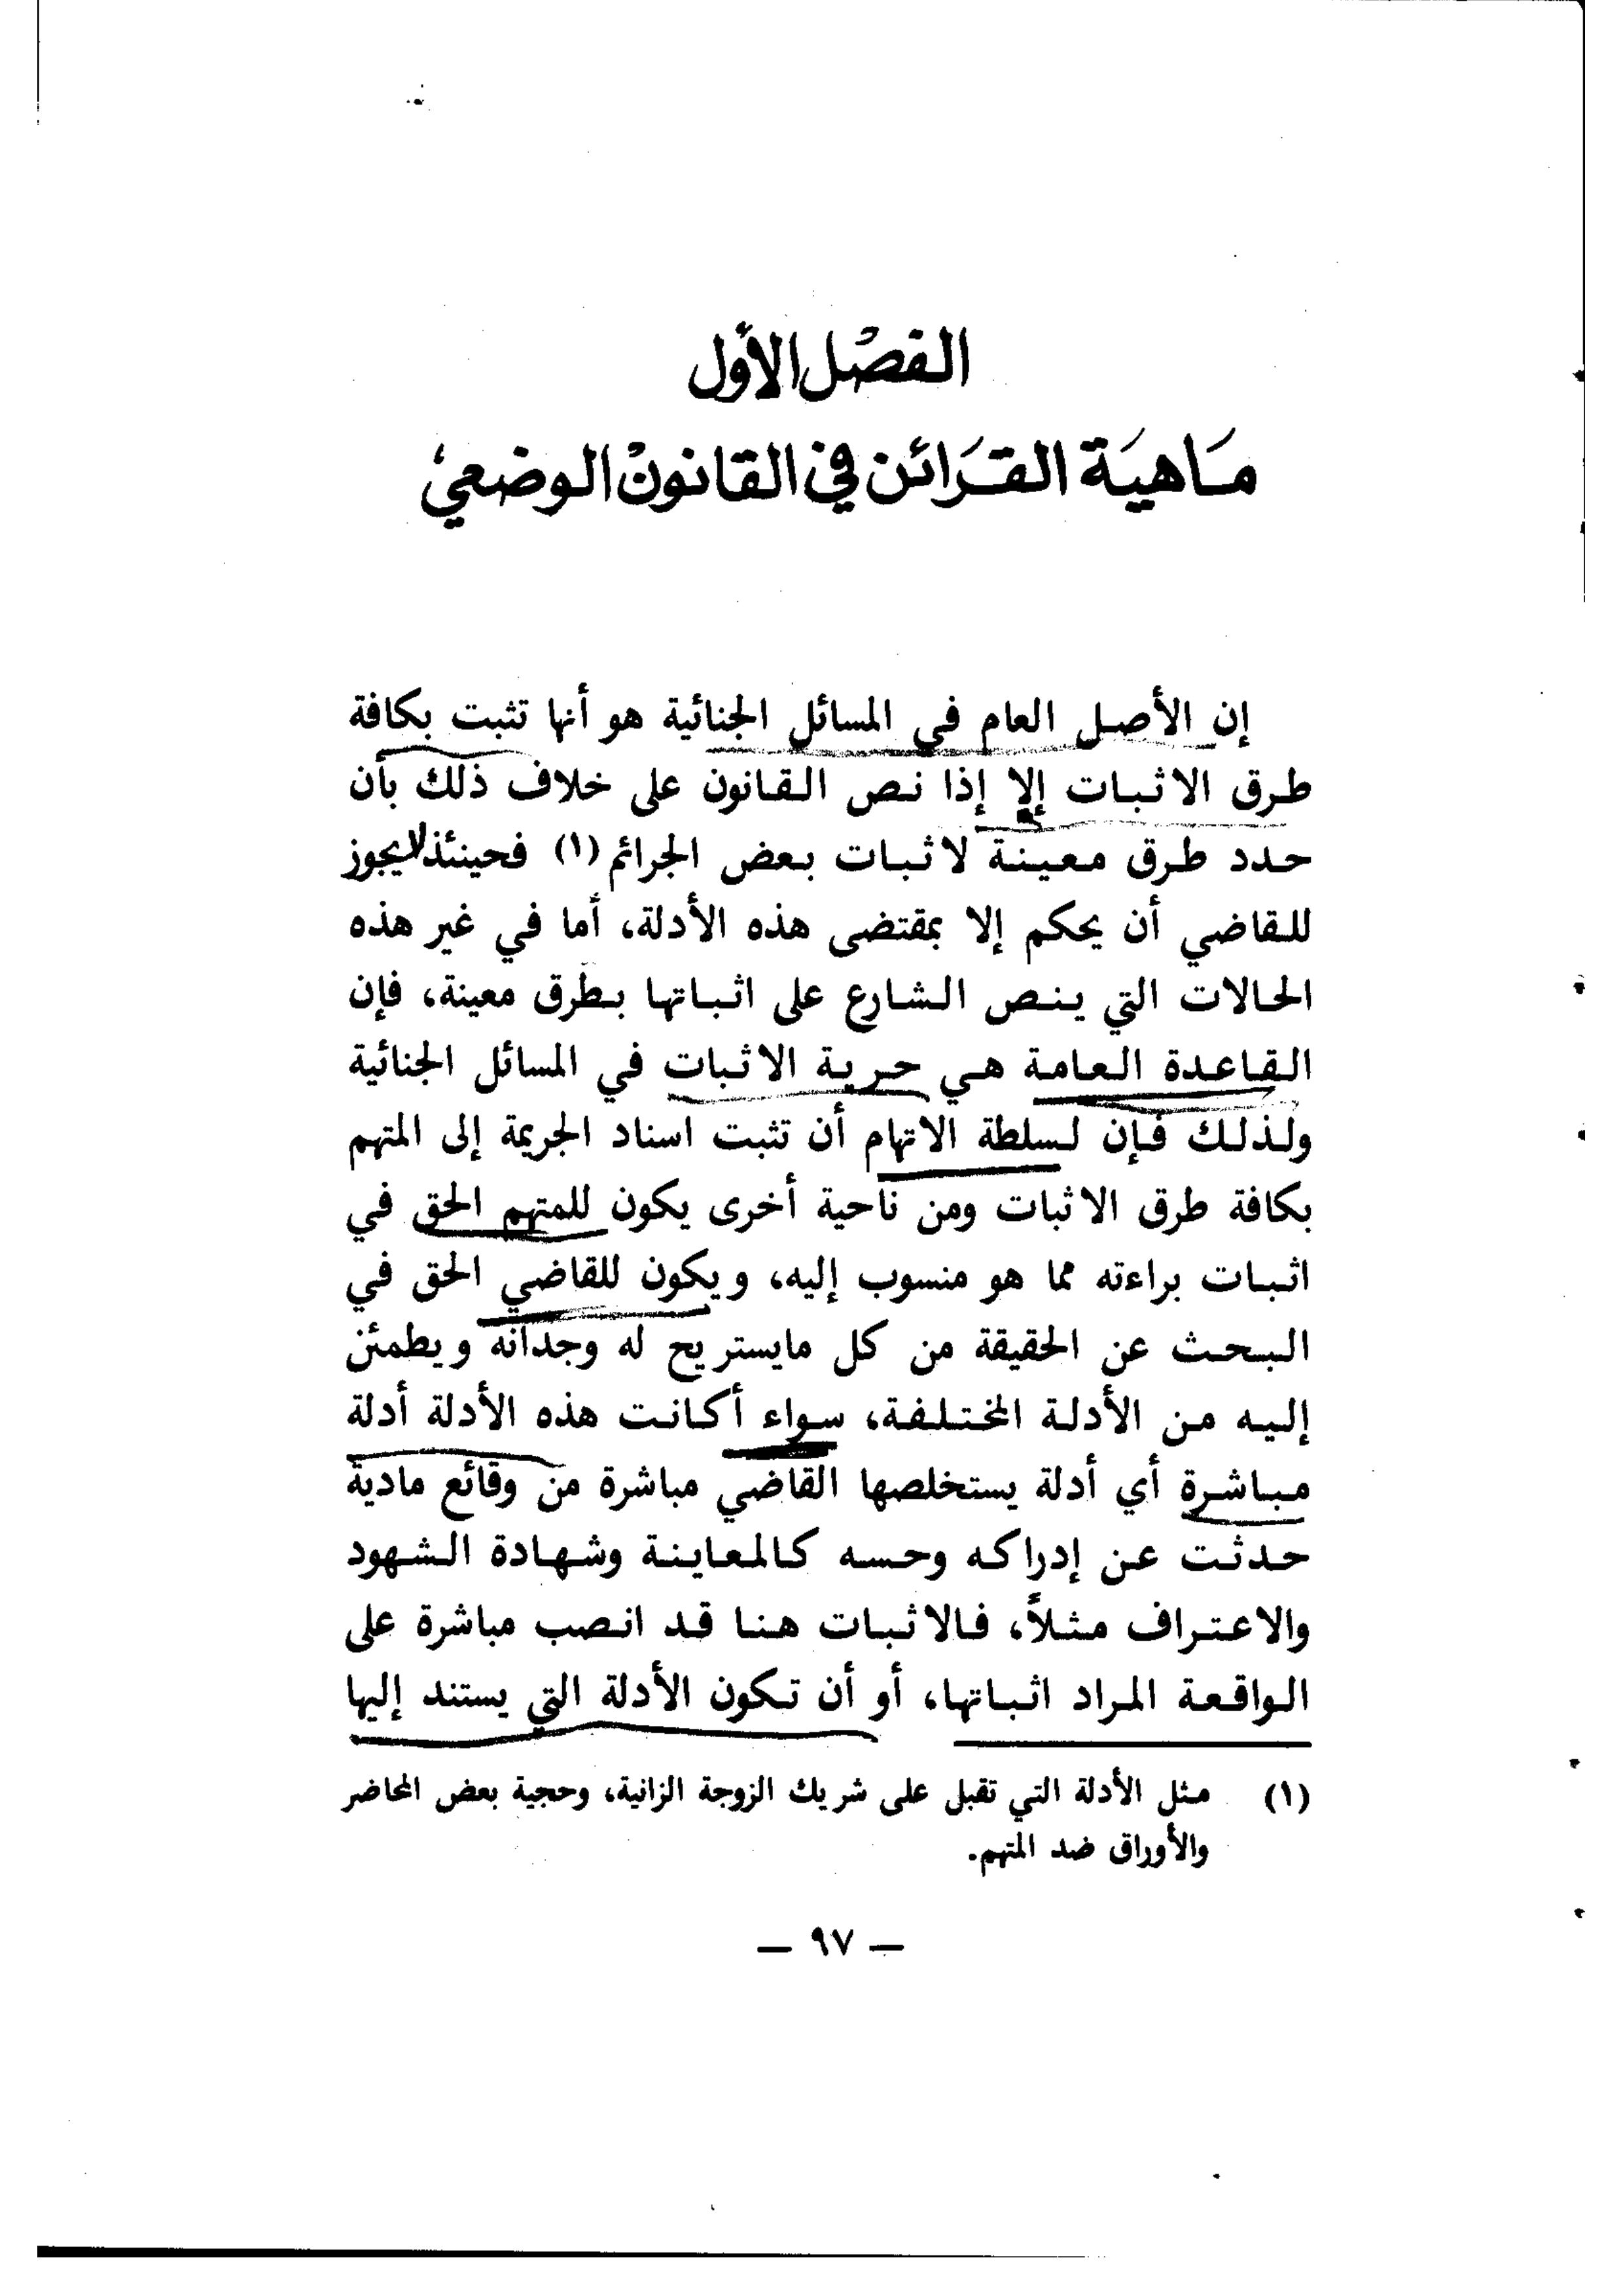 الفصل الأول
ماهية القرائن في القانون الوضعي
إن الأصل العام في المسائل الجنائية هو أنها تثبت بكافة
طرق الاثبات إلا إذا نص القانون على خلاف ذلك بأن
حدد طرق معينة لاثبات بعض الجرائم (١) فحينئذ لا يجوز
للقاضي أن يحكم إلا بمقتضى هذه الأدلة، أما في غير هذه
الحالات التي ينص الشارع على اثباتها بطرق معينة، فإن
القاعدة العامة هي حرية الاثبات في المسائل الجنائية
ولذلك فإن لسلطة الاتهام أن تثبت اسناد الجريمة إلى المتهم
بكافة طرق الاثبات ومن ناحية أخرى يكون للمتهم الحق في
اثبات براءته مما هو منسوب إليه، ويكون للقاضي الحق في
البحث عن الحقيقة من كل مايستريح له وجدانه ويطمئن
إليه من الأدلة المختلفة، سواء أكانت هذه الأدلة أدلة
مباشرة أي أدلة يستخلصها القاضي مباشرة من وقائع مادية
حدثت عن إدراكه وحسه كالمعاينة وشهادة الشهود
والاعتراف مثلاً، فالاثبات هنا قد انصب مباشرة على
الواقعة المراد اثباتها، أو أن تكون الأدلة التي يستند إليها
(١) مثل الأدلة التي تقبل على شريك الزوجة الزانية، وحجية بعض المحاضر
والأوراق ضد المتهم.
— ٩٧ —